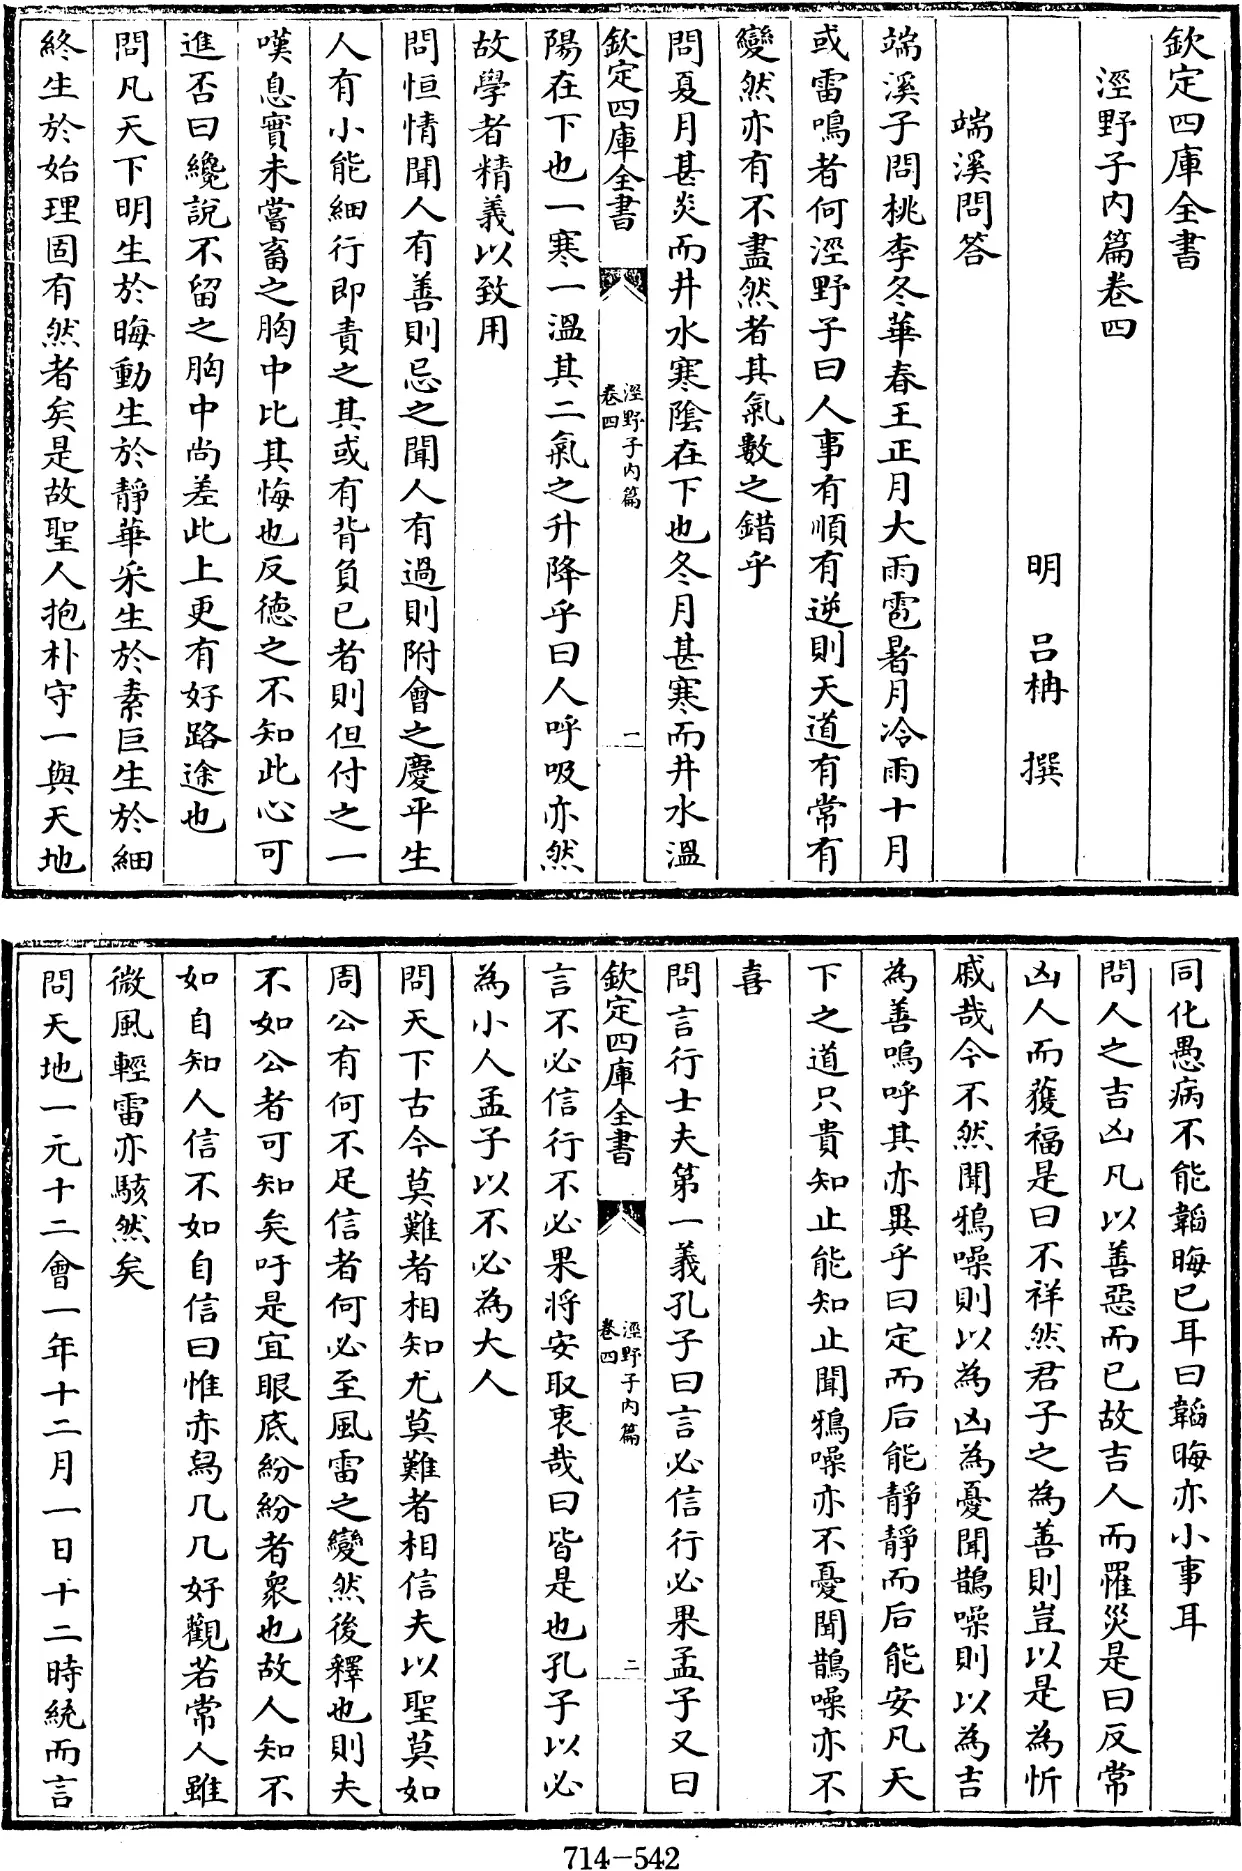 欽定四庫全書
涇野子內篇卷四
明 呂柟 撰
端溪問答
端溪子問桃李冬華春王正月大雨雹暑月冷雨十月
或雷鳴者何涇野子曰人事有順有逆則天道有常有
變然亦有不盡然者其氣數之錯乎
問夏月甚炎而井水寒陰在下也冬月甚寒而井水溫
欽定四庫全書
涇野子內篇
卷四
一
陽在下也一寒一溫其二氣之升降乎曰人呼吸亦然
故學者精義以致用
問恒情聞人有善則忌之聞人有過則附會之慶平生
人有小能細行即責之其或有背負已者則但付之一
嘆息實未嘗畜之胸中比其悔也反德之不知此心可
進否曰纔說不留之胸中尚差此上更有好路途也
問凡天下明生於晦動生於靜華采生於素巨生於細
終生於始理固有然者矣是故聖人抱朴守一與天地
同化愚病不能韜晦已耳曰韜晦亦小事耳
問人之吉凶凡以善惡而已故吉人而罹災是曰反常
凶人而獲福是曰不祥然君子之為善則豈以是為忻
戚哉今不然聞鴉噪則以為凶為憂聞鵲噪則以為吉
為善嗚呼其亦異乎曰定而后能靜靜而后能安凡天
下之道只貴知止能知止聞鴉噪亦不憂聞鵲噪亦不
喜
問言行士夫第一義孔子曰言必信行必果孟子又曰
欽定四庫全書
涇野子內篇
卷四
二
言不必信行不必果將安取衷哉曰皆是也孔子以必
為小人孟子以不必為大人
問天下古今莫難者相知尤莫難者相信夫以聖莫如
周公有何不足信者何必至風雷之變然後釋也則夫
不如公者可知矣吁是宜眼底紛紛者衆也故人知不
如自知人信不如自信曰惟赤舄几几好觀若常人雖
微風輕雷亦駭然矣
問天地一元十二會一年十二月一日十二時統而言
714-542